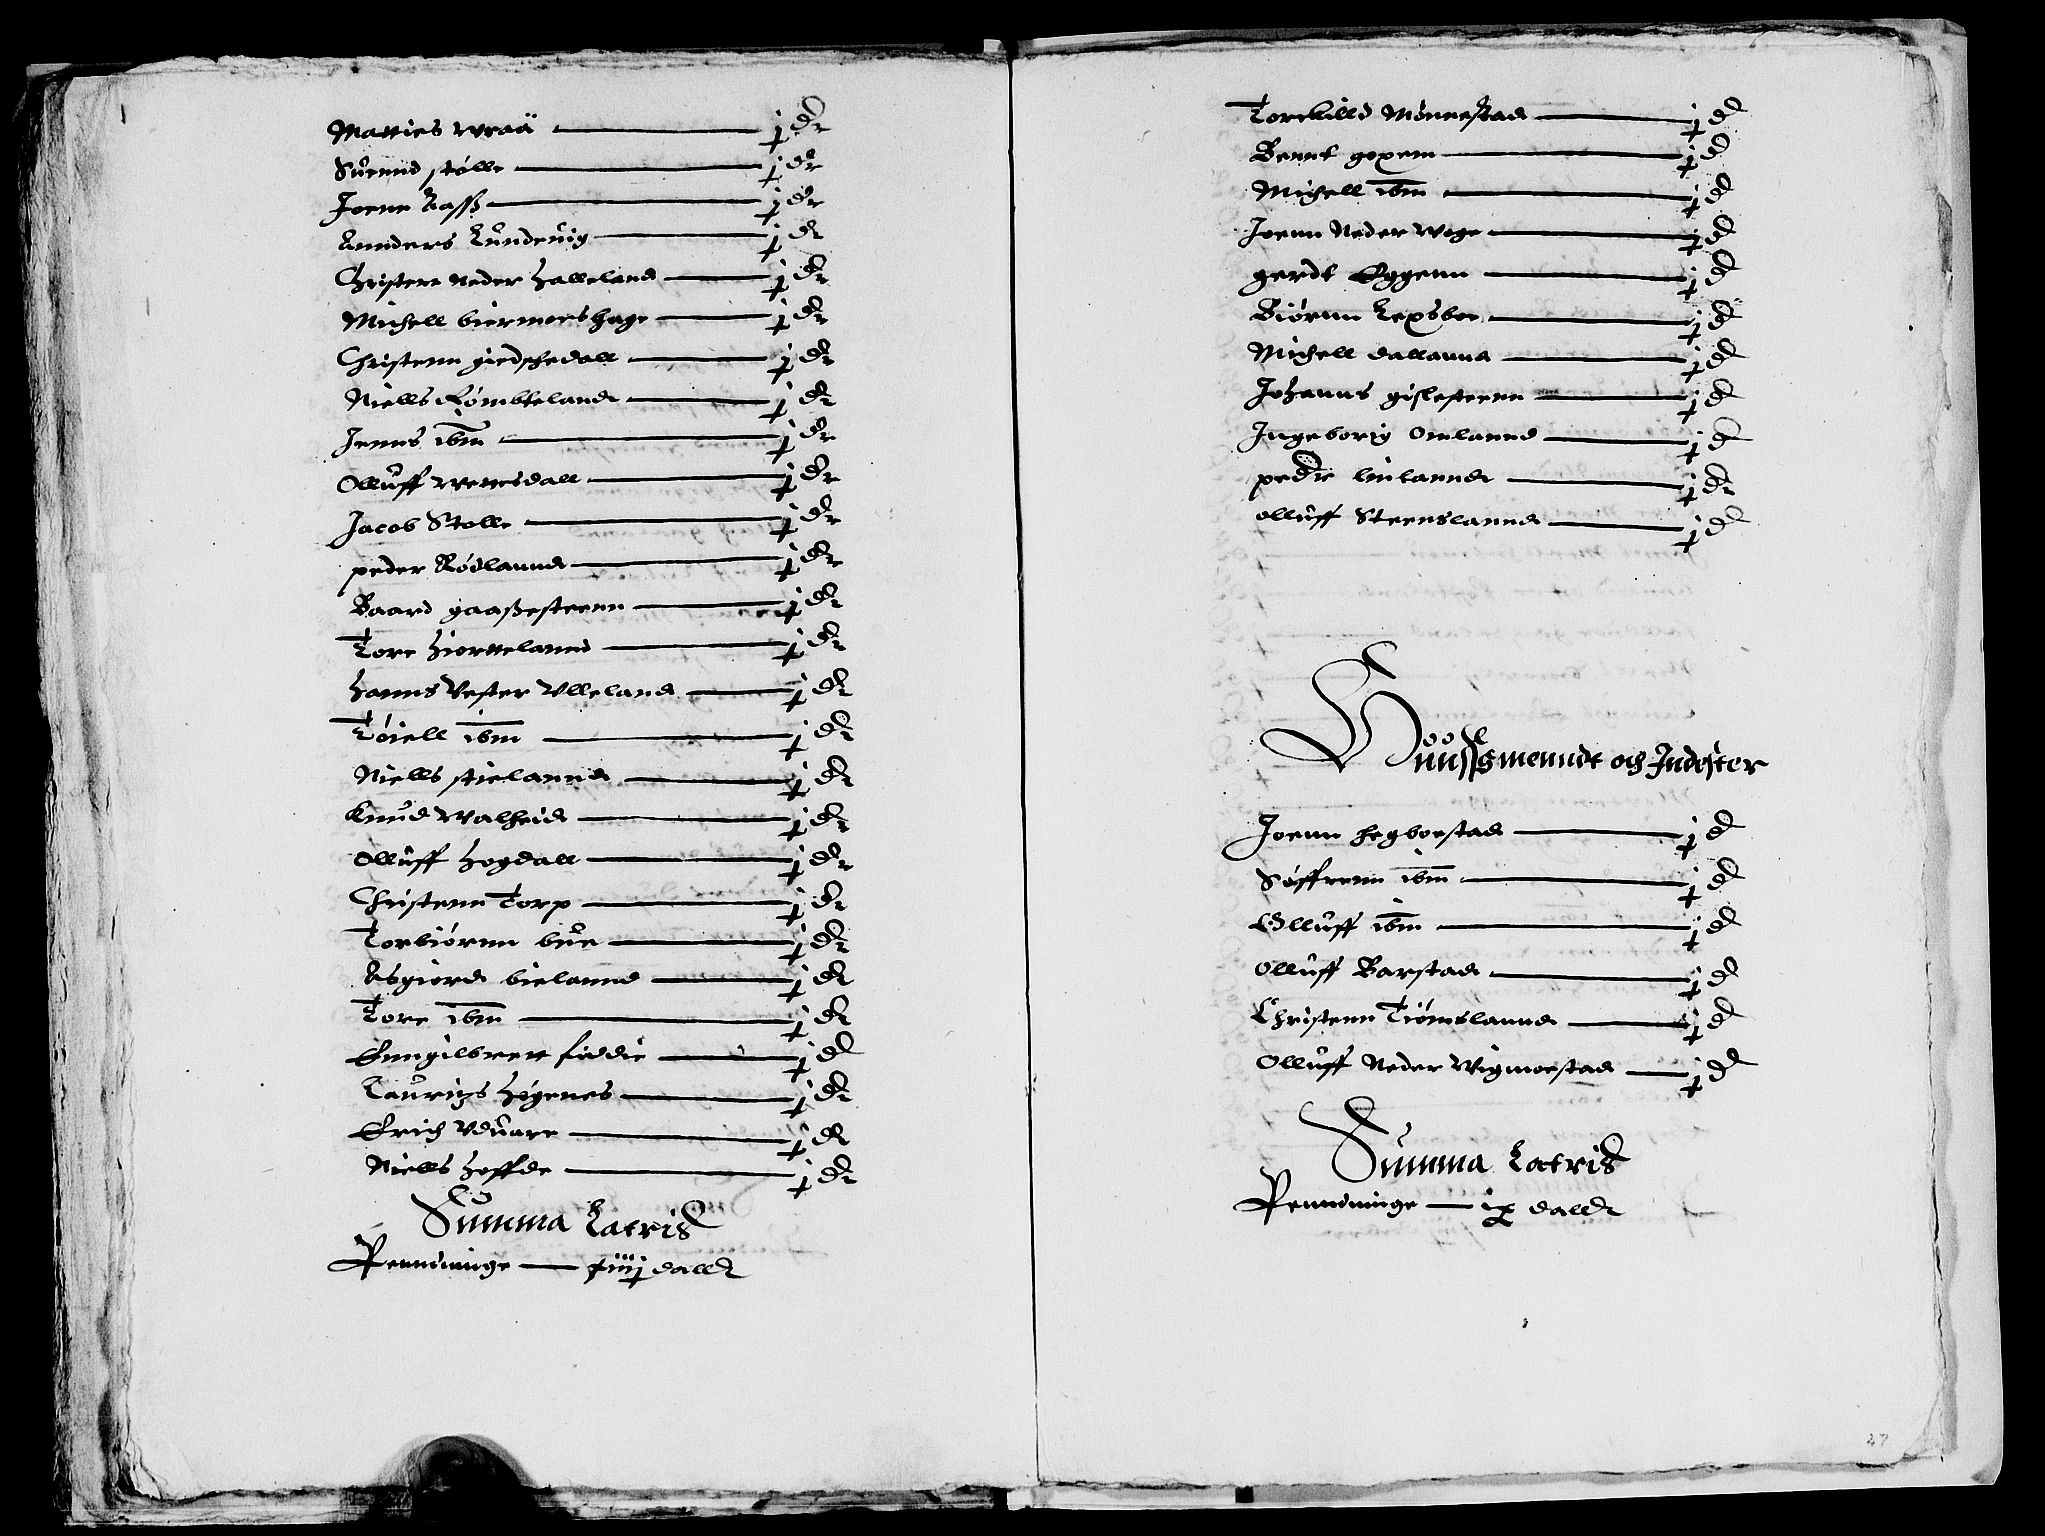 Matties Wraä — j dr
Suennd stølle — j dr
Joenn Aass — j dr
Annders Lundeuig — j dr
Christenn Neder Halleland — j dr
Michell biermoeshage — j dr
Christenn giedschedall — j dr
Niells Rømbteland — j dr
Jenns ibm — j dr
Olluff Wettesdall — j dr
Jacob Stolle — j dr
peder Rødlannd — j dr
Baard gaaßesteenn — j dr
Tore Hiortteland — j dr
Hanns Vester Vlleland — j dr
Tøiell ibm — j dr
Niells stielannd — j dr
Knud Walheid — j dr
Olluff Hogdall — j dr
Christenn Torp — j dr
Torbiørnn bue — j dr
Asgiord bielannd — j dr
Tore ibm — j dr
Enngilbrett fiddie — j dr
Lauritzs Høgenes — j dr
Erich Vduare — j dr
Niells Hoffde — j dr
Summa Latris
Penndinge — xiiij dallr
Torckilld Mønnestad — j d
Bennt goxem — j d
Michell ibm — j d
Joenn Neder Wege — j d
gerdt Eggenn — j d
Biørnn Lexsboe — j d
Michell dallannd — j d
Johanns gislesteenn — j d
Ingeborig Omlannd — j d
pedr linlannd — j dr
olluff Steenslannd — j d
Huussmenndt och Indester
Joenn Hegboestad — j d
Søffrenn ibm — j d
Olluff ibm — j d
Olluff Barstad — j d
Christenn Tiømslannd — j d
Olluff Neder Wigmoestad — j d
Summa Latris
Penndinge — ix dallr
47